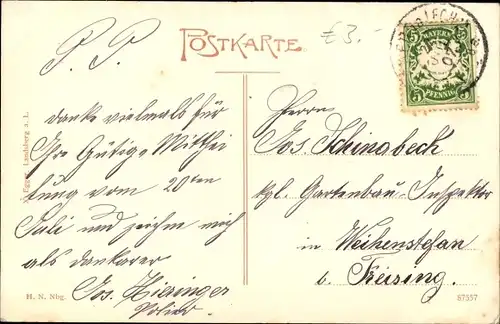 P. P.
POSTKARTE
£3.-
BAYERN
5 5
PFENNIG
danke vielmals für
Ihre Gütige Mitthei
lung vom 20ten
Juli und zeichne mich
als dankbarer
Jos. Hieringer
Polier.
Herrn
Jos. Schinabeck
kgl. Gartenbau-Inspektor
in Weihenstefan
b. Freising.
Egger, Landsberg a. L.
H. N. Nbg.
87557